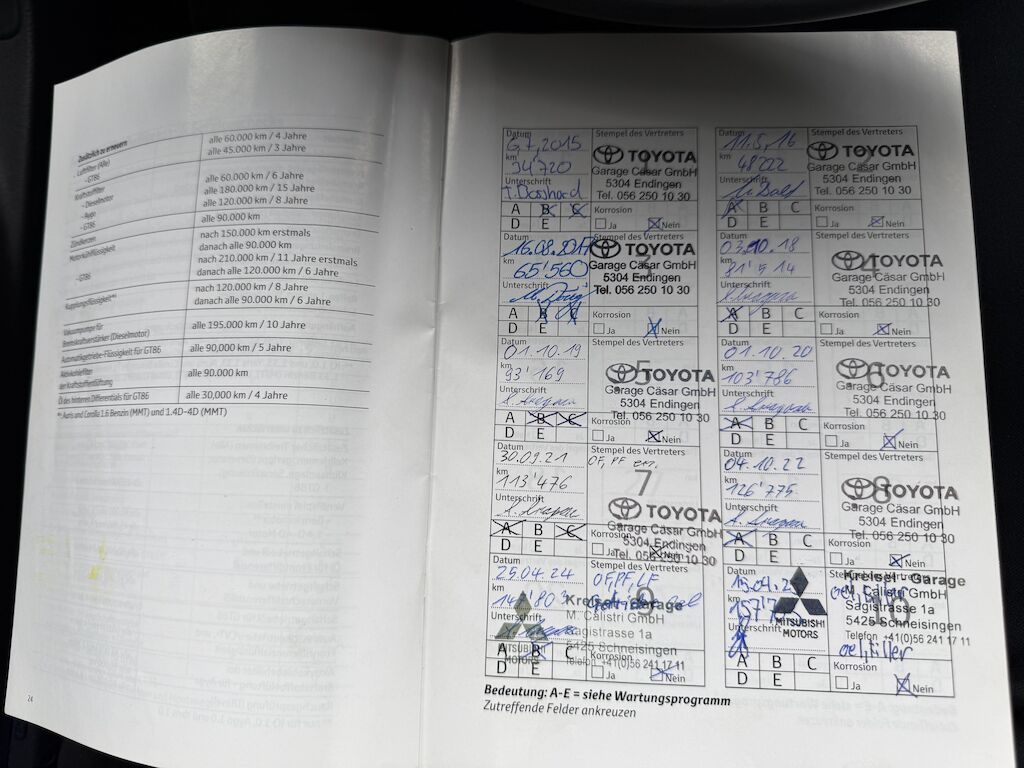 Zusätzlich zu erneuern
Luftfilter (Alle) alle 60.000 km / 4 Jahre
- GT86 alle 45.000 km / 3 Jahre
Kraftstofffilter alle 60.000 km / 6 Jahre
- Dieselmotor alle 180.000 km / 15 Jahre
- Aygo alle 120.000 km / 8 Jahre
- GT86
Zündkerzen alle 90.000 km
Motorkühlflüssigkeit nach 150.000 km erstmals
danach alle 90.000 km
- GT86 nach 210.000 km / 11 Jahre erstmals
danach alle 120.000 km / 6 Jahre
nach 120.000 km / 8 Jahre
danach alle 90.000 km / 6 Jahre
Vakuumpumpe für
Bremskraftverstärker (Dieselmotor) alle 195.000 km / 10 Jahre
Automatikgetriebe-Flüssigkeit für GT86 alle 90,000 km / 5 Jahre
Aktivkohlefilter
der Kraftstoffentlüftung alle 90.000 km
Öl des hinteren Differentials für GT86 alle 30,000 km / 4 Jahre
Auris und Corolla 1.6 Benzin (MMT) und 1.4D-4D (MMT)
24
Datum Stempel des Vertreters
6,7,2015
km TOYOTA
34720 Garage Cäsar GmbH
Unterschrift 5304 Endingen
Tel. 056 250 10 30
A B C Korrosion
D E Ja Nein
Datum Stempel des Vertreters
11.5,16
km TOYOTA
48222 Garage Cäsar GmbH
Unterschrift 5304 Endingen
Tel. 056 250 10 30
A B C Korrosion
D E Ja Nein
Datum
16.08.2017 TOYOTA
km 3
65'560 Garage Cäsar GmbH
Unterschrift 5304 Endingen
Tel. 056 250 10 30
A B C Korrosion
D E Ja Nein
Datum Stempel des Vertreters
03.10.18
km 4 TOYOTA
81'514 Garage Cäsar GmbH
Unterschrift 5304 Endingen
Tel. 056 250 10 30
A B C Korrosion
D E Ja Nein
Datum Stempel des Vertreters
01.10.19
km 5 TOYOTA
93'169 Garage Cäsar GmbH
Unterschrift 5304 Endingen
Tel. 056 250 10 30
A B C Korrosion
D E Ja Nein
Datum Stempel des Vertreters
01.10.20
km 6 TOYOTA
103'786 Garage Cäsar GmbH
Unterschrift 5304 Endingen
Tel. 056 250 10 30
A B C Korrosion
D E Ja Nein
Datum Stempel des Vertreters
30.09.21 OF, PF
km 7
113'476 TOYOTA
Unterschrift Garage Cäsar GmbH
5304 Endingen
A B C Tel. 056 250 10 30
D E Korrosion Ja Nein
Datum Stempel des Vertreters
04.10.22
km 8 TOYOTA
126'775 Garage Cäsar GmbH
Unterschrift 5304 Endingen
Tel. 056 250 10 30
A B C Korrosion
D E Ja Nein
Datum Stempel des Vertreters
25.04.24 OF,PF,LF
km 9 Kreispi Garage
M. Calistri GmbH
Unterschrift Sagistrasse 1a
MITSUBISHI MOTORS 5425 Schneisingen
Telefon +41(0)56 241 17 11
A B C Korrosion
D E Ja Nein
Datum Stempel des Vertreters
km 10 Kreispi Garage
M. Calistri GmbH
MITSUBISHI MOTORS Sagistrasse 1a
Unterschrift 5425 Schneisingen
Telefon +41(0)56 241 17 11
A B C Korrosion
D E Ja Nein
Bedeutung: A-E = siehe Wartungsprogramm
Zutreffende Felder ankreuzen